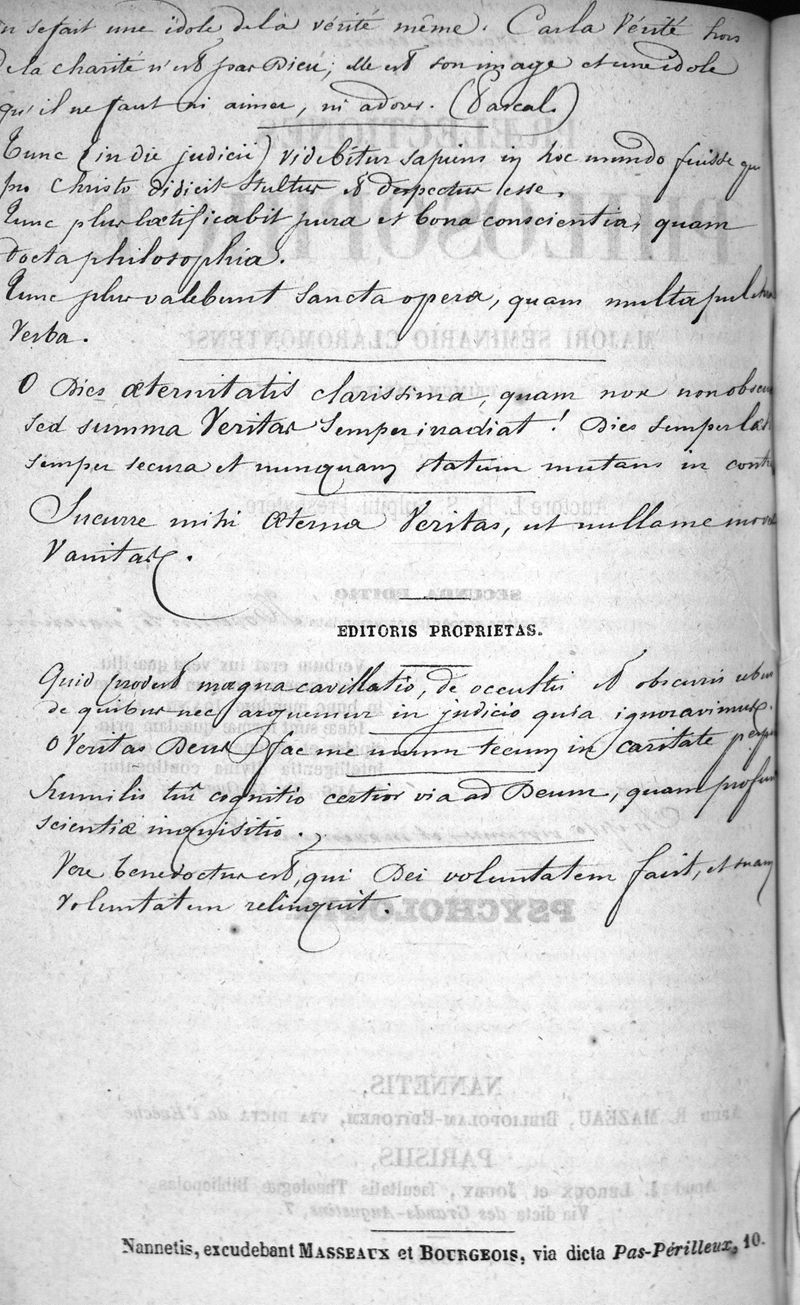 se fait une idole de la vérité même. Car la Vérité hors
de la charité n'est pas Dieu; elle est son image et une idole
qu'il ne faut ni aimer, ni adorer. (Pascal)
Tunc (in die judicii) videbitur sapiens in hoc mundo fuisse qui
pro Christo didicit stultus et despectus esse.
Tunc plus lætificabit pura et bona conscientia, quam
docta philosophia.
Tunc plus valebunt sancta opera, quam multa pulchra
Verba.
O Dies æternitatis clarissima, quam nox non obscu
sed summa Veritas semper irradiat! Dies semper læt
semper secura et nunquam statum mutans in contr
Sucurre mihi Æterna Veritas, ut nulla me mov
Vanitas.
EDITORIS PROPRIETAS.
Quid prodest magna cavillatio, de occultis et obscuris rebus
de quibus nec arguemur in judicio quia ignoravimus.
O Veritas Deus, fac me unum tecum in caritate perp
Humilis tui cognitio certior via ad Deum, quam profun
scientiæ inquisitio.
Vere bene doctus est, qui Dei voluntatem facit, et suam
voluntatem relinquit.
PRÆLECTIONES
PHILOSOPHICÆ
MAJORI SEMINARIO CLAROMONTENSI
Auctore
SECUNDA EDITIO
Verbum erat lux vera quæ illu
in hunc mundum
Ideæ sunt formæ quædam prin
intelligentia divina continentur
PSYCHOLOGIA
NANNETIS,
MAZEAU, BIBLIOPOLAM-EDITOREM, VIA DICTA de l'Évêché
PARISIIS,
Apud J. LEROUX et JOUBY, facultatis Theologiæ Bibliopolas
Via dicta des Grands-Augustins, 7.
Nannetis, excudebant MASSEAUX et BOURGEOIS, via dicta Pas-Périlleux, 10.